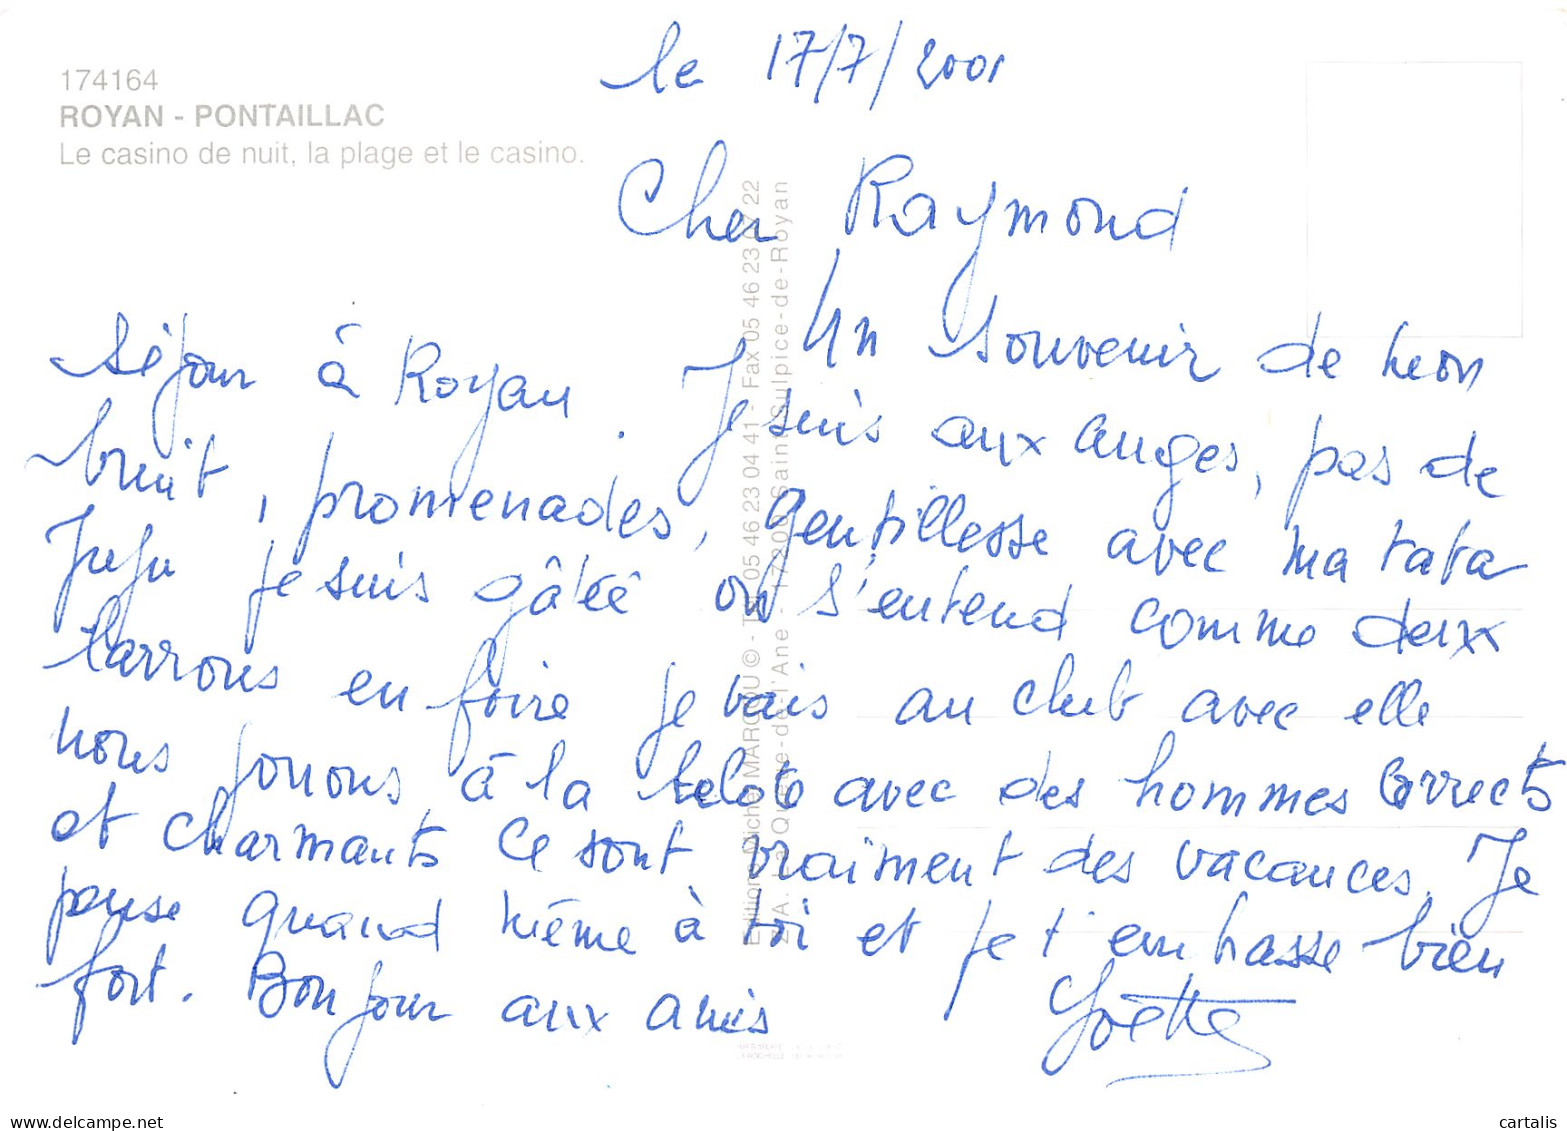 174164
ROYAN - PONTAILLAC
Le casino de nuit, la plage et le casino.
le 17/7/2001
Cher Raymond
Un souvenir de mon
séjour à Royan. Je suis aux anges, pas de
bruit, promenades, gentillesse avec ma tata
Juju je suis gâtée on s'entend comme deux
larrons en foire je vais au club avec elle
nous jouons à la belote avec des hommes corrects
et charmants ce sont vraiment des vacances. Je
pense quand même à toi et je t'embrasse bien
fort. Bonjour aux amis
Yoëtte
Editions Michel MARCOU © - Tél. 05 46 23 04 41 - Fax 05 46 23 07 22
Z.A. La Queue-de-l'Ane - 17200 Saint-Sulpice-de-Royan
www.delcampe.net
cartalis